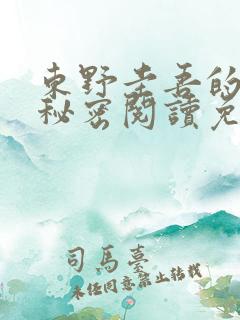 東野圭吾的
秘密閱讀免
司馬臺
未经同意禁止转载